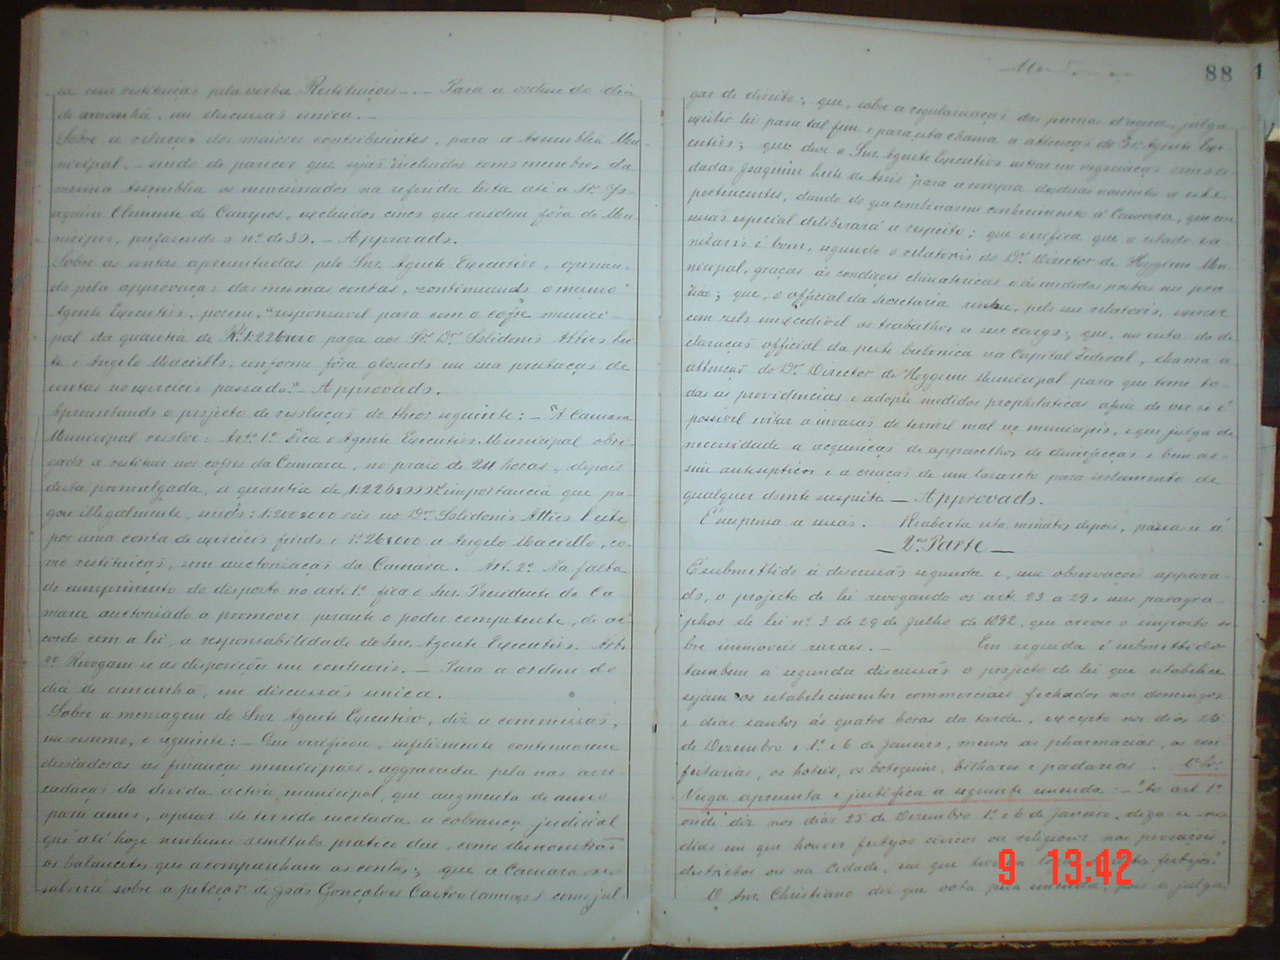 se una restituiçaõ pela verba Restituições -.- Para a ordem do dia
de amanhã, em discussaõ unica. -
Sobre a relaçaõ dos maiores contribuintes, para a Assembléa Mu-
nicipal. - sendo de parecer que sejaõ incluidos como membros da
mesma Assembléa os mencionados na referida lista até o nº
Clemente de Campos, excluidos cinco que residem fóra do Mu-
nicipio, perfazendo o nº de 35. - Approvado.
Sobre as contas apresentadas pelo Snr. Agente Executivo, opinan-
do pela approvaçaõ das mesmas contas, continuando o mesmo
Agente Executivo, porem, "responsavel para com o cofre munici-
pal da quantia de Rs. 1:226$000 paga ao Sr. Dr. Lei-
te e Angelo Maciello, conforme fôra glosado em sua prestaçaõ de
contas no exercicio passado." - Approvado.
Apresentando o projecto de resoluçaõ do theor seguinte: - "A Camara
Municipal resolve: Art. 1º Fica o Agente Executivo Municipal obri-
gado a restituir aos cofres da Camara, no praso de 24 horas, depois
desta promulgada, a quantia de 1:226$000 importancia que pa-
gou illegalmente, sendo: 1:200$000 reis ao Dr. Leite
por uma conta de exercicio findo e 26$000 a Angelo Maciello, co-
mo restituiçaõ, sem auctorisaçaõ da Camara. Art. 2º Na falta
do cumprimento do disposto no art. 1º fica o Snr. Presidente da Ca-
mara auctorisado a promover perante o poder competente, de ac-
cordo com a lei, a responsabilidade do Snr. Agente Executivo. Art.
3º Revogam-se as disposições em contrario. - Para a ordem do
dia de amanhã, em discussaõ unica.
Sobre a mensagem do Snr. Agente Executivo, diz a commissaõ,
em resumo, o seguinte: - Que verificou, infelizmente continuarem
as finanças municipaes, aggravada pela naõ arre-
cadaçaõ da divida activa municipal, que augmenta de anno
para anno, apesar de ter sido encetada a cobrança judicial
que até hoje nenhum resultado pratico deu, como demonstraõ
os balancetes que acompanham as contas; que a Camara re-
solverá sobre a petiçaõ de Joaõ Gonçalves Castro como jul
88
gar de direito; que, sobre a regularisaçaõ das pennas d'agua, julga
existir lei para tal fim e para isto chama a attençaõ do Sr. Agente Exe-
cutivo; que deve o Snr. Agente Executivo entrar em negociaçaõ com o ci-
dadaõ Joaquim Leite de Assis para a compra
pertencentes, dando do que combinarem conhecimento á Camara, que em
sessaõ especial deliberará a respeito; que verifica que o estado sa-
nitario é bom, segundo o relatorio do Dr. Director de Hygiene Mu-
nicipal, graças ás condições climatericas e ás medidas postas em pra-
tica; que, o official da secretaria pelo seu relatorio, exerce
com zelo inexcedivel os trabalhos a seu cargo; que, em vista da de-
claraçaõ official da peste bubonica na Capital Federal, chama a
attençaõ do Dr. Director de Hygiene Municipal para que tome to-
das as providencias e adopte medidas prophilaticas afim de ver se é
possivel evitar a invasaõ de terrivel mal no municipio, e que julga de
necessidade a acquisiçaõ de apparelhos de desinfecçaõ e bem as-
sim antisepticos e a creaçaõ de um lazareto para isolamento de
qualquer doente suspeito - Approvado.
É suspensa a sessaõ. Reaberta minutos depois, passa-se á
- 2ª Parte -
É submettido á discussaõ segunda e, sem observações approva-
do, o projecto de lei revogando os art. 23 a 29 e seus paragra-
phos de lei nº. 3 de 29 de Julho de 1892, que creou o imposto so-
bre immoveis ruraes. - Em seguida é submettido
tambem a segunda discussaõ o projecto de lei que estabelece
sejam os estabelecimentos commerciaes fechados nos domingos
e dias santos ás quatro horas da tarde, excepto nos dias 25
de Dezembro e 1º e 6 de Janeiro, menos as pharmacias, as con-
feitarias, os hoteis, os botequins, bilhares e padarias. O Sr.
Veiga apresenta e justifica a seguinte emenda: - "Ao art. 1º
onde diz nos dias 25 de Dezembro 1º e 6 de Janeiro, diga-se nos
dias em que houver festejos civicos ou religiosos nas povoações,
districtos ou na Cidade, em que festejos."
O Snr. Christiano diz que vota pela emenda, pois a julga
9 13:42